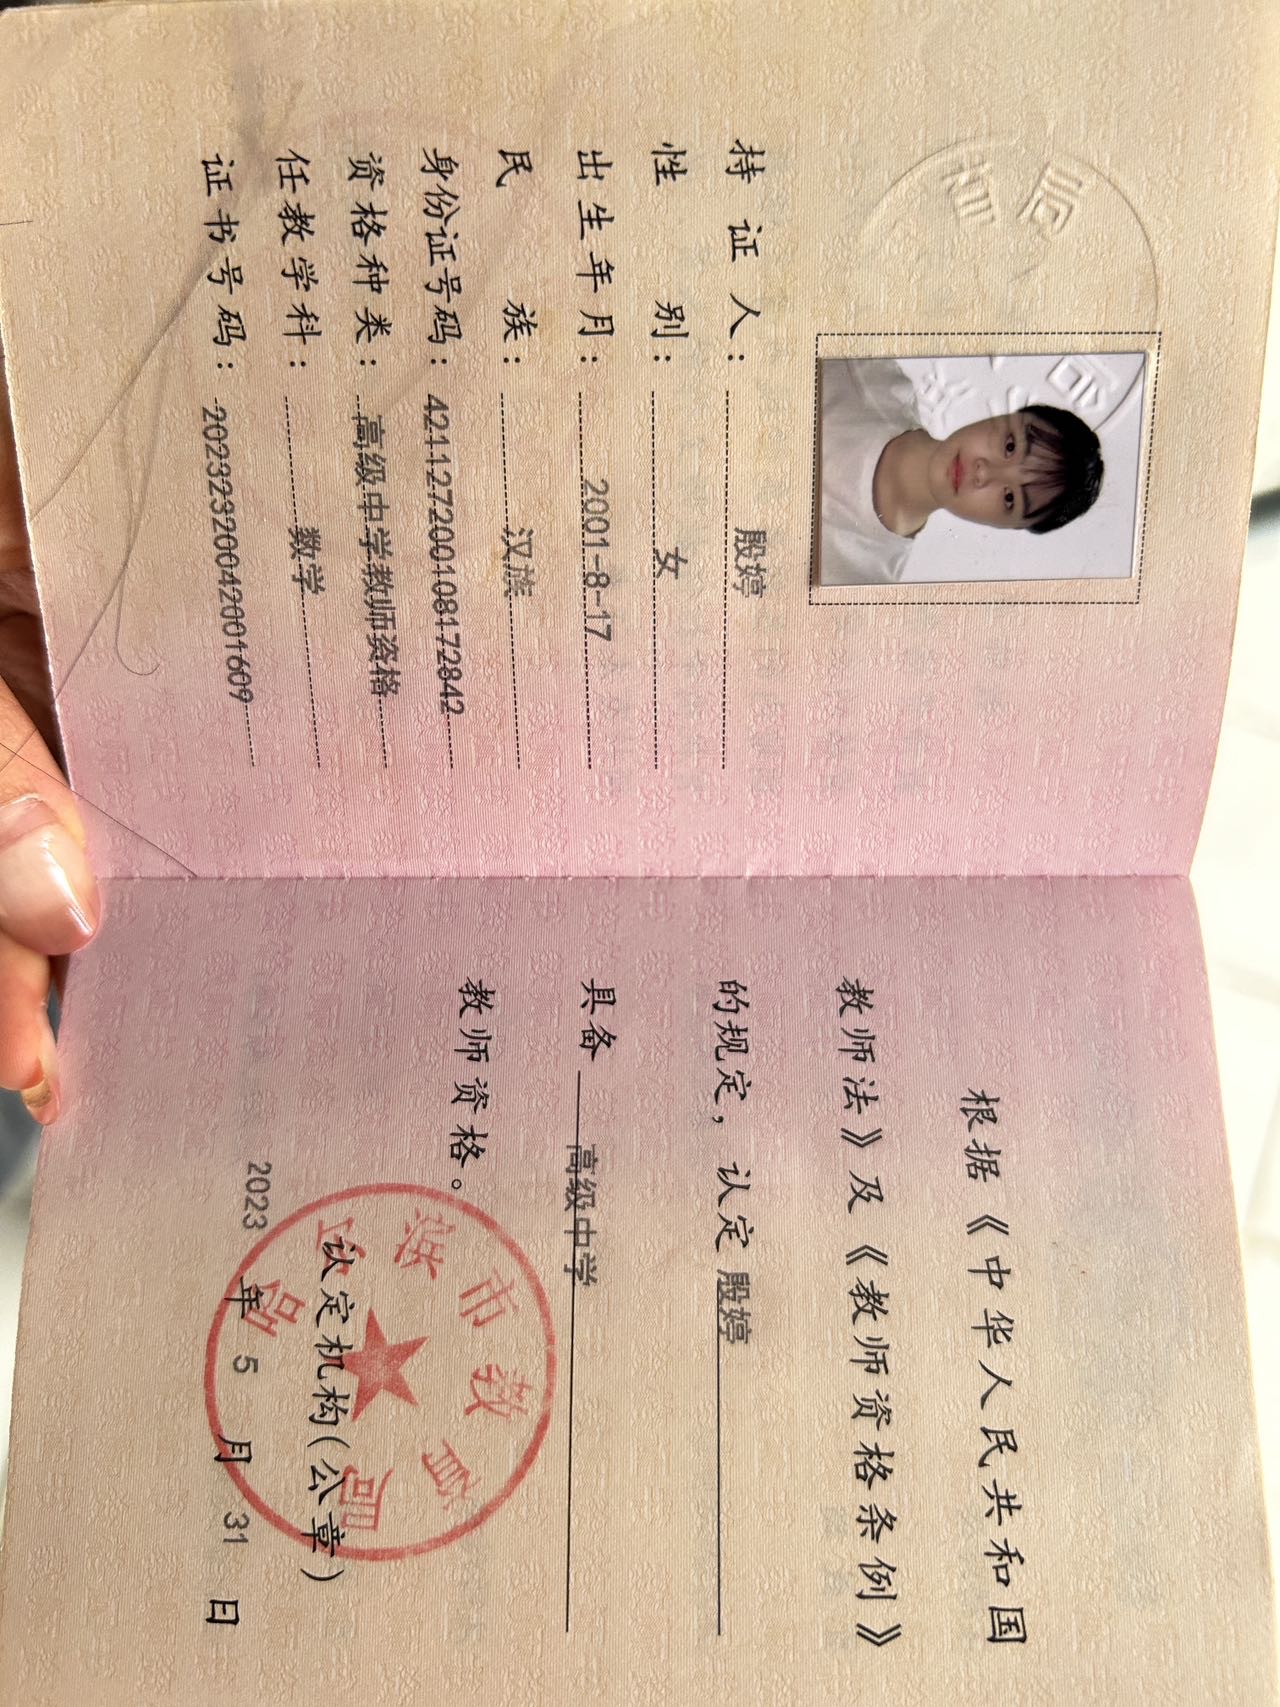 持证人：殷婷
性别：女
出生年月：2001-8-17
民族：汉族
身份证号码：421127200108172842
资格种类：高级中学教师资格
任教学科：数学
证书号码：20232320042001609
根据《中华人民共和国
教师法》及《教师资格条例》
的规定，认定殷婷
具备高级中学
教师资格。
认定机构（公章）
2023年5月31日
市教育局